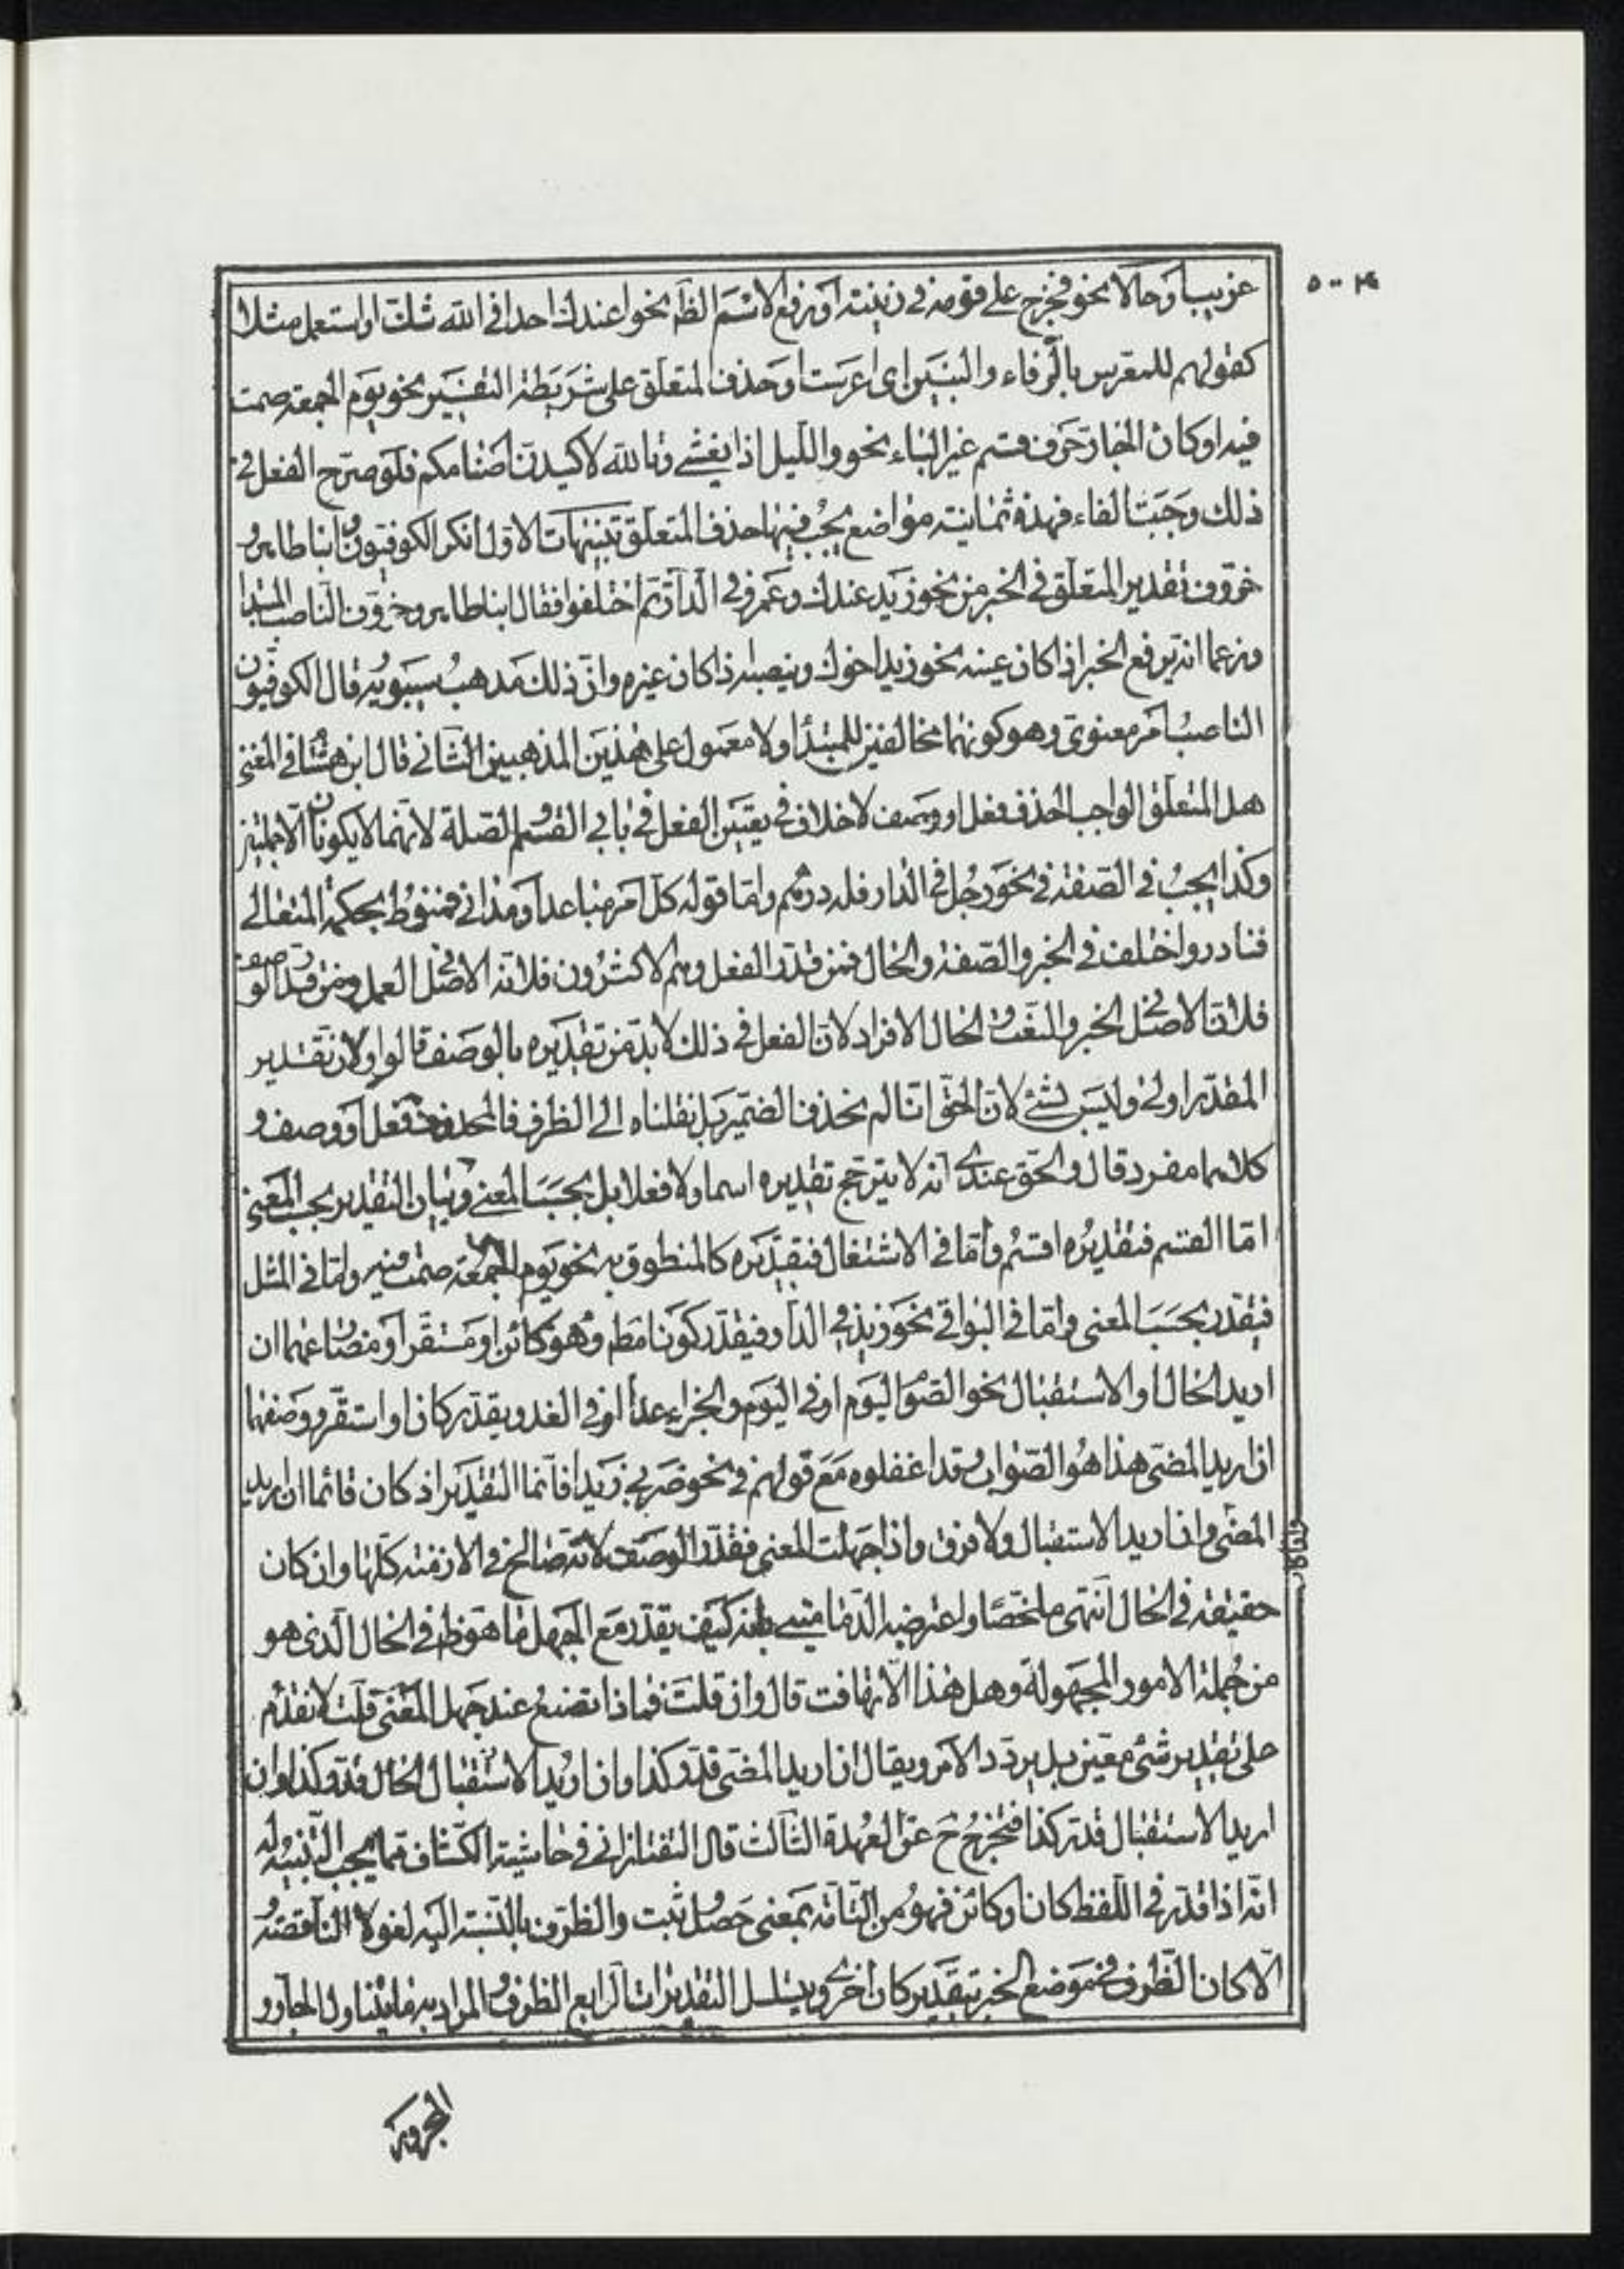 ٥٠٠٤
غريبا وحالا نحو فخرج على قومه في زينته او رفع الاسم الظم نحو اعندك احد افي الله شك او استعمل مثلا
كقولهم للمعرس بالرفاء والبنين اى اعرست او حذف المتعلق على شريطة التفسير نحو يوم الجمعة صمت
فيه او كان الجار حرف قسم غير الباء نحو والليل اذا يغشى وتالله لاكيدن اصنامكم فلو صرح الفعل في
ذلك وجبت الفاء فهذه ثمانية مواضع يجب فيها حذف المتعلق تنبيهات الاول انكر الكوفيون وابنا طاهر و
خروف تقدير المتعلق في الخبر من نحو زيد عندك وعمرو في الدار ثم اختلفوا فقال ابنا طاهر وخروف الناصب المبتدا
وزعما انه يرفع الخبر اذا كان عينه نحو زيد اخوك وينصبه اذا كان غيره وان ذلك مذهب سيبويه وقال الكوفيون
الناصب امر معنوى وهو كونهما مخالفين للمبتدا ولا معمول على هذين المذهبين الثاني قال ابن هشام في المغنى
هل المتعلق الواجب الحذف فعل او وصف لا خلاف في تعيين الفعل في بابي القسم والصلة لانهما لا يكونان الا جملتين
وكذا يجب في الصفة في نحو رجل في الدار فله درهم واما قوله كل امر مباعد او مداني فمنوط بحكمة المتعالي
فنادر واختلف في الخبر والصفة والحال فمن قدر الفعل وهم الاكثرون فلانه الاصل في العمل ومن قدر الوصف
فلان الاصل في الخبر والنعت والحال الافراد لان الفعل في ذلك لابد من تقديره بالوصف قالوا ولان تقدير
المقدر اولى وليس بشئ لان الحق انا لم نحذف الضمير بل نقلناه الى الظرف فالمحذوف فعل او وصف و
كلاهما مفرد قال والحق عندى انه لا يترجح تقديره اسما ولا فعلا بل بحسب المعنى وبيان التقدير بحسب المعنى
اما القسم فتقديره اقسم واما في الاشتغال فتقديره كالمنطوق به نحو يوم الجمعة صمت فيه واما في المثل
فيقدر بحسب المعنى واما في البواقي نحو زيد في الدار فيقدر كونا مطم وهو كائن او مستقر او مضارعهما ان
اريد الحال او الاستقبال نحو الصوم اليوم او في اليوم والجزاء غدا او في الغد ويقدر كان او استقر ووصفهما
ان اريد المضى هذا هو الصواب وقد اغفلوه مع قولهم في نحو ضربي زيدا قائما التقدير اذ كان قائما ان اريد
المضى واذا اريد الاستقبال ولا فرق واذا جهلت المعنى فقدر الوصف لانه صالح في الازمنة كلها وان كان
حقيقة في الحال انتهى ملخصا واعترضه الدمامينى بانه كيف يقدر مع الجهل ما هو ظ في الحال الذى هو
من جملة الامور المجهولة وهل هذا الا تهافت قال وان قلت فماذا تصنع عند جهل المعنى قلت لا نقدم
على تقدير شئ معين بل يردد الامر ويقال ان اريد المضى قدر كذا وان اريد الاستقبال الحال قدر كذا وان
اريد الاستقبال قدر كذا فتخرج ح عن العهدة الثالث قال التفتازاني في حاشية الكشاف مما يجب التنبيه له
انه اذا قدر في اللفظ كان او كائن فهو من التامة بمعنى حصل ثبت والظرف بالنسبة اليه لغو لا الناقصة و
الا كان الظرف في موضع الخبر بتقدير كان اخرى ويتسلسل التقديرات الرابع الظرف والمراد به ما يتناول الجار و
المجرور